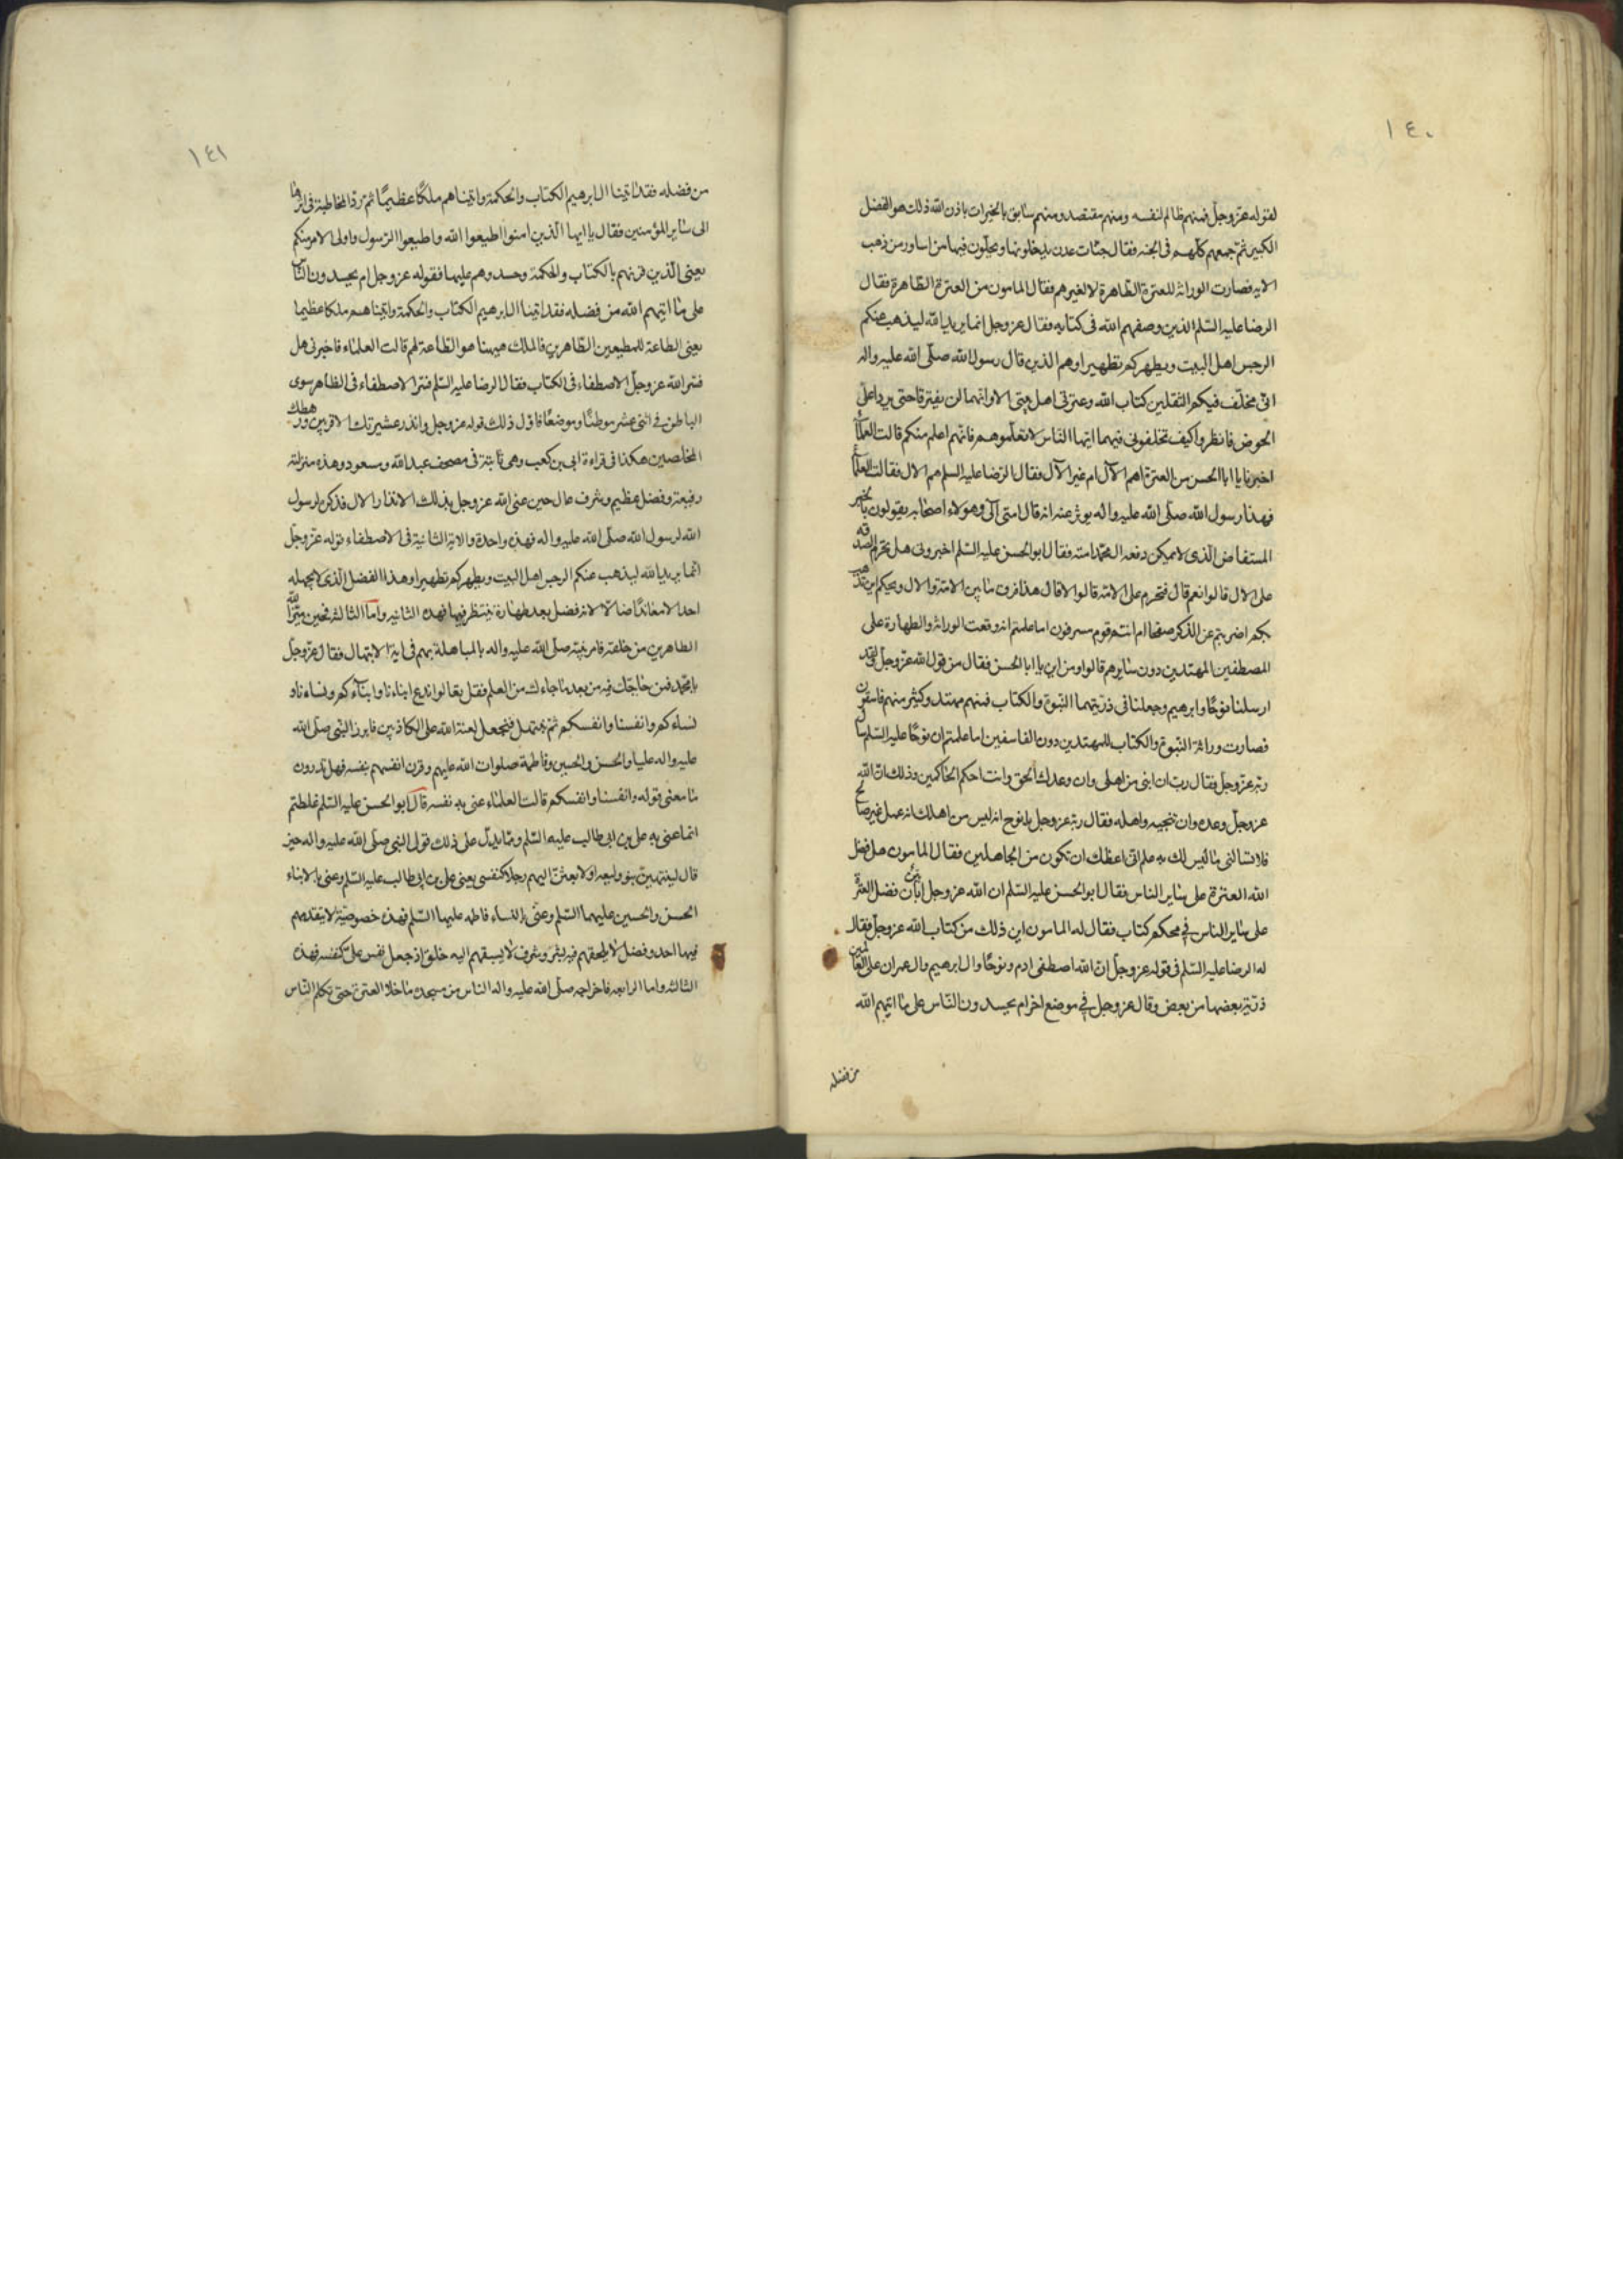 ١٤٠
لقوله عزّ وجلّ فمنهم ظالم لنفسه ومنهم مقتصد ومنهم سابق بالخيرات باذن الله ذلك هو الفضل
الكبير ثم جمعهم كلّهم فى الجنه فقال جنّات عدن يدخلونها ويحلّون فيها من اساور من ذهب
الايه فصارت الوراثة للعترة الطّاهرة لا لغيرهم فقال المامون من العترة الطّاهرة فقال
الرضا عليه السّلم الذين وصفهم الله فى كتابه فقال عز وجل انما يريد الله ليذهب عنكم
الرجس اهل البيت ويطهركم تطهيرا وهم الذين قال رسول الله صلّى الله عليه واله
انّى مخلّف فيكم الثقلين كتاب الله وعترتى اهل بيتى الا وانّهما لن يفترقا حتى يردا علىّ
الحوض فانظروا كيف تخلفونى فيهما ايّها النّاس لا تعلّموهم فانّهم اعلم منكم قالت العلمآء
اخبرنا يا ابا الحسن من العترة اهم الآل ام غير الآل فقال الرّضا عليه السلم هم الال فقالت العلمآء
فهذا رسول الله صلّى الله عليه واله يوثر عنه انه قال امتى آلى وهولاء اصحابه يقولون بالخبر
المستفاض الّذى لا يمكن دفعه ال محمّد امته فقال ابو الحسن عليه السّلم اخبرونى هل تحرم الصدقه
على الال قالوا نعم قال فتحرم على الامّة قالوا لا قال هذا فرق ما بين الامّة والال ويحكم اين يذهب
بكم اضربتم عن الذكر صفحا ام انتم قوم مسرفون اما علمتم انه وقعت الوراثة والطهارة على
المصطفين المهتدين دون سايرهم قالوا ومن اين يا ابا الحسن فقال من قول الله عزّ وجلّ لقد
ارسلنا نوحًا وابرهيم وجعلنا فى ذرّيتهما النّبوّة والكتاب فمنهم مهتد وكثير منهم فاسقون
فصارت وراثة النّبوة والكتاب للمهتدين دون الفاسقين اما علمتم ان نوحًا عليه السّلم سأل
ربّه عزّ وجلّ فقال ربّ ان ابنى من اهلى وان وعدك الحق وانت احكم الحاكمين وذلك انّ الله
عز وجلّ وعده ان ينجيه واهله فقال ربّه عز وجل يا نوح انه ليس من اهلك انه عمل غير صالح
فلا تسالنى ما ليس لك به علم انّى اعظك ان تكون من الجاهلين فقال المامون هل فضل
الله العترة على ساير الناس فقال ابو الحسن عليه السّلم ان الله عز وجل ابان فضل العترة
على ساير الناس فى محكم كتابه فقال له المامون اين ذلك من كتاب الله عز وجلّ فقال
له الرضا عليه السّلم فى قوله عز وجلّ انّ الله اصطفى ادم ونوحًا وال ابرهيم وال عمران على العالمين
ذريّة بعضها من بعض وقال عز وجل فى موضع اخر ام يحسدون النّاس على ما اتيهم الله
من فضله
١٤١
من فضله فقد اتينا ال ابرهيم الكتاب والحكمة واتيناهم ملكًا عظيمًا ثم ردّ المخاطبة فى اثر هذا
الى ساير المؤمنين فقال يا ايها الّذين امنوا اطيعوا الله واطيعوا الرّسول واولى الامر منكم
يعنى الّذين قرنهم بالكتاب والحكمة وحسدوهم عليهما فقوله عز وجل ام يحسدون النّاس
على ما اتيهم الله من فضله فقد اتينا ال ابرهيم الكتاب والحكمة واتيناهم ملكا عظيما
يعنى الطاعة للمطيعين الطّاهرين فالملك هيهنا هو الطّاعة لهم قالت العلماء فاخبرنى هل
فسّر الله عز وجلّ الاصطفاء فى الكتاب فقال الرضا عليه السّلم فسّر الاصطفاء فى الظاهر سوى
الباطن فى اثنى عشر موطنًا وموضعًا فاوّل ذلك قوله عز وجل وانذر عشيرتك الاقربين ورهطك
المخلصين هكذا فى قراءة ابى بن كعب وهى ثابتة فى مصحف عبد الله وسعود وهذه منزلة
رفيعة وفضل عظيم وشرف عال حين عنى الله عز وجل بذلك الانذار الال فذكره لرسول
الله لرسول الله صلّى الله عليه واله فهذه واحدة والاية الثانية فى الاصطفاء قوله عزّ وجلّ
انّما يريد الله ليذهب عنكم الرجس اهل البيت ويطهركم تطهيرا وهذا الفضل الّذى لا يجهله
احد الا معاندًا ضالّا لانه فضل بعد طهارة ينتظر فيها فهذه الثانيه وامّا الثالثة فحين ميّز الله
الطاهرين من خلقه فامر نبيّه صلّى الله عليه واله بالمباهلة بهم فى اية الابتهال فقال عزّ وجلّ
يا محمّد فمن حاجّك فيه من بعد ما جاءك من العلم فقل تعالوا ندع ابناءنا وابنآءكم ونساءنا و
نساءكم وانفسنا وانفسكم ثم نبتهل فنجعل لعنة الله على الكاذبين فابرز النّبى صلّى الله
عليه واله عليا والحسن والحسين وفاطمة صلوات الله عليهم وقرن انفسهم بنفسه فهل تدرون
ما معنى قوله وانفسنا وانفسكم قالت العلماء عنى به نفسه قال ابو الحسن عليه السّلم غلطتم
انما عنى به على بن ابى طالب عليه السّلم وممّا يدلّ على ذلك قول النبى صلّى الله عليه واله حين
قال لينتهينّ بنو وليعه او لابعثنّ اليهم رجلا كنفسى يعنى على بن ابى طالب عليه السّلم وعنى بالابناء
الحسن والحسين عليهما السّلم وعنى بالنساء فاطمه عليها السّلم فهذه خصوصيّة لا يتقدمهم
فيها احد وفضل لا يلحقهم فيه بشر وشرف لا يسبقهم اليه خلق اذ جعل نفس علىّ كنفسه فهذه
الثالثه واما الرابعه فاخراجه صلّى الله عليه واله الناس من مسجده ما خلا العترة حتى تكلم النّاس